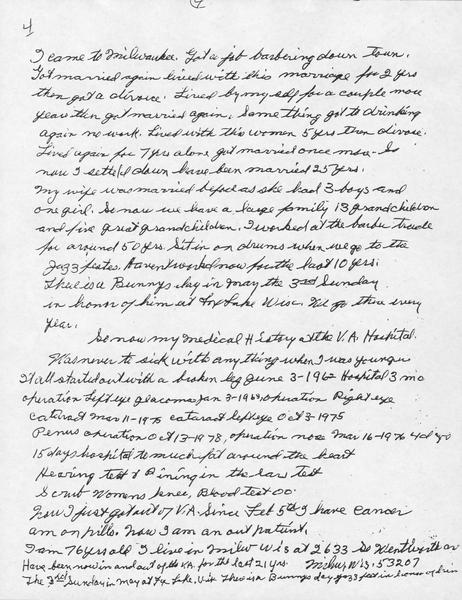 4
I came to Milwaukee. Got a job barbering down town.
Got married again lived with this marriage for 2 yrs
then got a divorce. Lived by my self for a couple more
years then got married again, same thing got to drinking
again no work. Lived with this women 5 yrs then divorce.
Lived again for 7 yrs alone got married once more - So
now I settled down have been married 25 yrs.
My wife was married before as she had 3 boys and
one girl. So now we have a large family 13 grandchildren
and five great grandchildren. I worked at the barber trade
for around 50 yrs. Sit in on drums when we go to the
Jazz feates. Havent worked now for the last 10 yrs.
There is a Bunnys day in May the 3rd Sunday
in honor of him at Fox Lake Wisc. We go there every
year.
So now my Medical History at the V.A. Hospital.
Was never to sick with any thing when I was younger
It all started out with a broken leg June 3-1962 Hospital 3 mo
operation Left eye glacoma Jan 3-1969, operation Right eye
cataract Mar 11-1975 cataract left eye Oct 3-1975
Penus operation Oct 13-1978, operation nose Mar 16-1976
15 days hospital to much fat around the heart
Hearing test & Ringing in the ear test
Blood test OO.
Now I just got out of V.A. Since Feb 5th I have cancer
am on pills. Now I am an out patient.
I am 76 years old I live in Milw Wis at 2633 So Wentworth av
Have been now in and out of the V.A. for the last 21 yrs. Milw, Wis. 53207
The 3rd Sunday in May at Fox Lake, Wis. This is a Bunnys day Jazz fest in honor of him